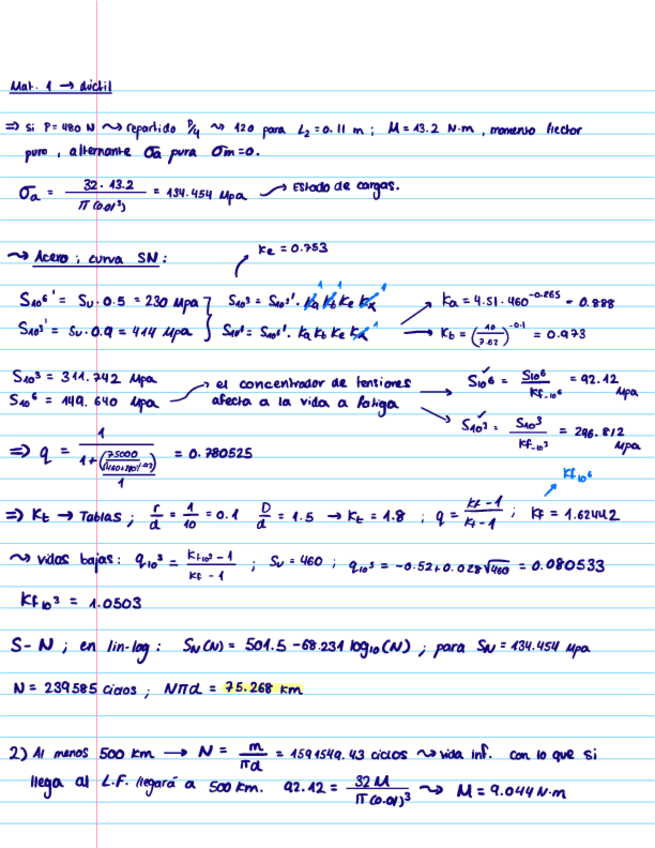 Mat. 1 → dúctil
⇒ si P=480 N ⤳ repartido P/4 ⤳ 120 para L₂=0.11 m ; M=13.2 N·m , momento flector
puro , alternante σa pura σm=0.
σa = 32·13.2 / π(0.01³) = 134.454 Mpa → Estado de cargas.
⤳ Acero ; curva SN :
Ke = 0.753
S10⁶' = Su·0.5 = 230 Mpa } S10³ = S10³'. Ka Kb Ke Kx
Ka = 4.51·460^-0.265 = 0.888
S10³' = Su·0.9 = 414 Mpa } S10⁶ = S10⁶'. Ka Kb Ke Kx
Kb = (10/7.62)^-0.1 = 0.973
S10³ = 311.742 Mpa
S10⁶ = 149.640 Mpa
el concentrador de tensiones
afecta a la vida a fatiga
S10⁶ = S10⁶ / Kf-10⁶ = 92.12 Mpa
S10³ = S10³ / Kf-10³ = 296.812 Mpa
Kf10⁶
⇒ Kt → Tablas ; r/d = 1/10 = 0.1 D/d = 1.5 → Kt = 1.8 ; q = Kf-1 / Kt-1 ; Kf = 1.62442
⤳ vidas bajas : q10³ = Kf10³-1 / Kf-1 ; Su = 460 ; q10³ = -0.52+0.028√460 = 0.080533
Kf10³ = 1.0503
S-N ; en lin-log : SN(N) = 501.5-68.231 log10(N) ; para SN = 134.454 Mpa
N = 239585 ciclos ; Nπd = 75.268 km
2) Al menos 500 km → N = m/πd = 1591549.43 ciclos ⤳ vida inf. con lo que si
llega al L.F. llegará a 500 km. 92.12 = 32M / π(0.01)³ ⤳ M = 9.044 N·m